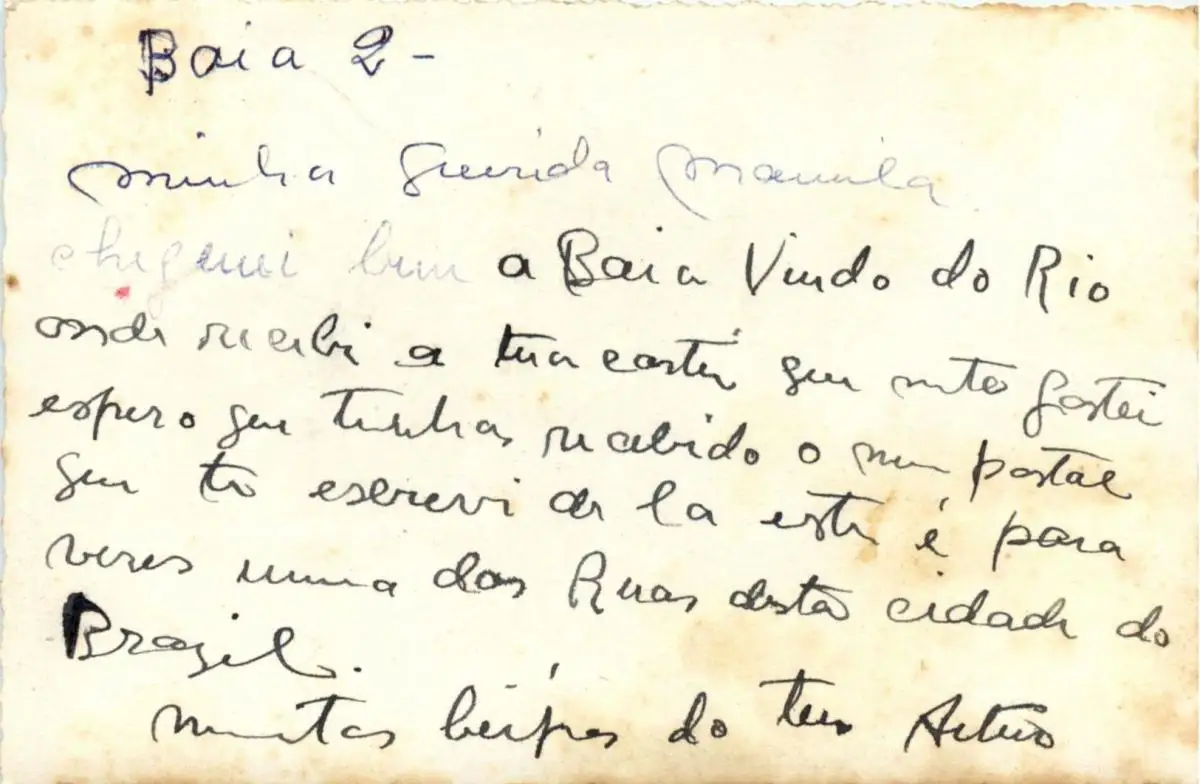 Baia 2-
minha querida Manuela
cheguei bem a Baia Vindo do Rio
onde recebi a tua carta que muto gostei
espero que tenhas recebido o meu postal
que te escrevi de la este é para
veres uma das Ruas desta cidade do
Brazil.
muitas beijos do teu Artur